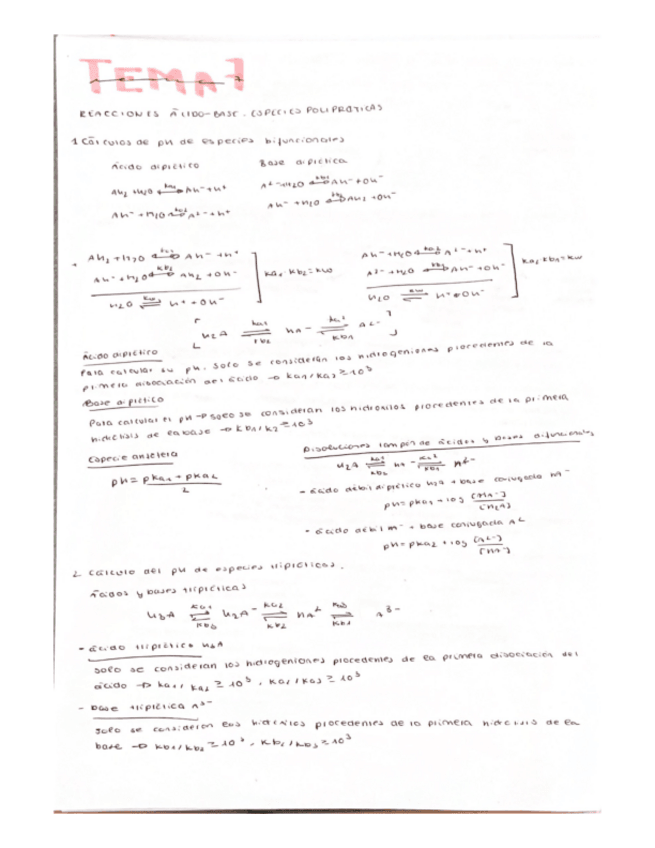 TEMA 7
REACCIONES ÁCIDO-BASE. ESPECIES POLIPRÓTICAS
1. Cálculos de pH de especies bifuncionales
Ácido diprótico
Base diprótica
AH2 + H2O ⇌ AH- + H+
A2- + H2O ⇌ AH- + OH-
AH- + H2O ⇌ A2- + H+
AH- + H2O ⇌ AH2 + OH-
AH2 + H2O ⇌ AH- + H+
AH- + H2O ⇌ AH2 + OH-
Ka1 Kb2 = Kw
H2O ⇌ H+ + OH-
AH- + H2O ⇌ A2- + H+
A2- + H2O ⇌ AH- + OH-
Ka2 Kb1 = Kw
H2O ⇌ H+ + OH-
H2A ⇌ HA- ⇌ A2-
Ácido diprótico
Para calcular su pH, solo se consideran los hidrogeniones procedentes de la
primera disociación del ácido → Ka1/Ka2 ≥ 103
Base diprótica
Para calcular el pH → solo se consideran los hidroxilos procedentes de la primera
hidrólisis de la base → Kb1/K2 ≥ 103
Especie anfótera
pH = pKa1 + pKa2 / 2
Disoluciones tampón de ácidos y bases difuncionales
H2A ⇌ HA- ⇌ A2-
- ácido débil diprótico H2A + base conjugada HA-
pH = pKa1 + log [HA-] / [H2A]
- ácido débil HA- + base conjugada A2-
pH = pKa2 + log [A2-] / [HA-]
2. Cálculo del pH de especies tripróticas.
Ácidos y bases tripróticas
H3A ⇌ H2A- ⇌ HA2- ⇌ A3-
- ácido triprótico H3A
solo se consideran los hidrogeniones procedentes de la primera disociación del
ácido → Ka1/Ka2 ≥ 103, Ka1/Ka3 ≥ 103
- Base triprótica A3-
solo se consideran los hidroxilos procedentes de la primera hidrólisis de la
base → Kb1/Kb2 ≥ 103, Kb1/Kb3 ≥ 103